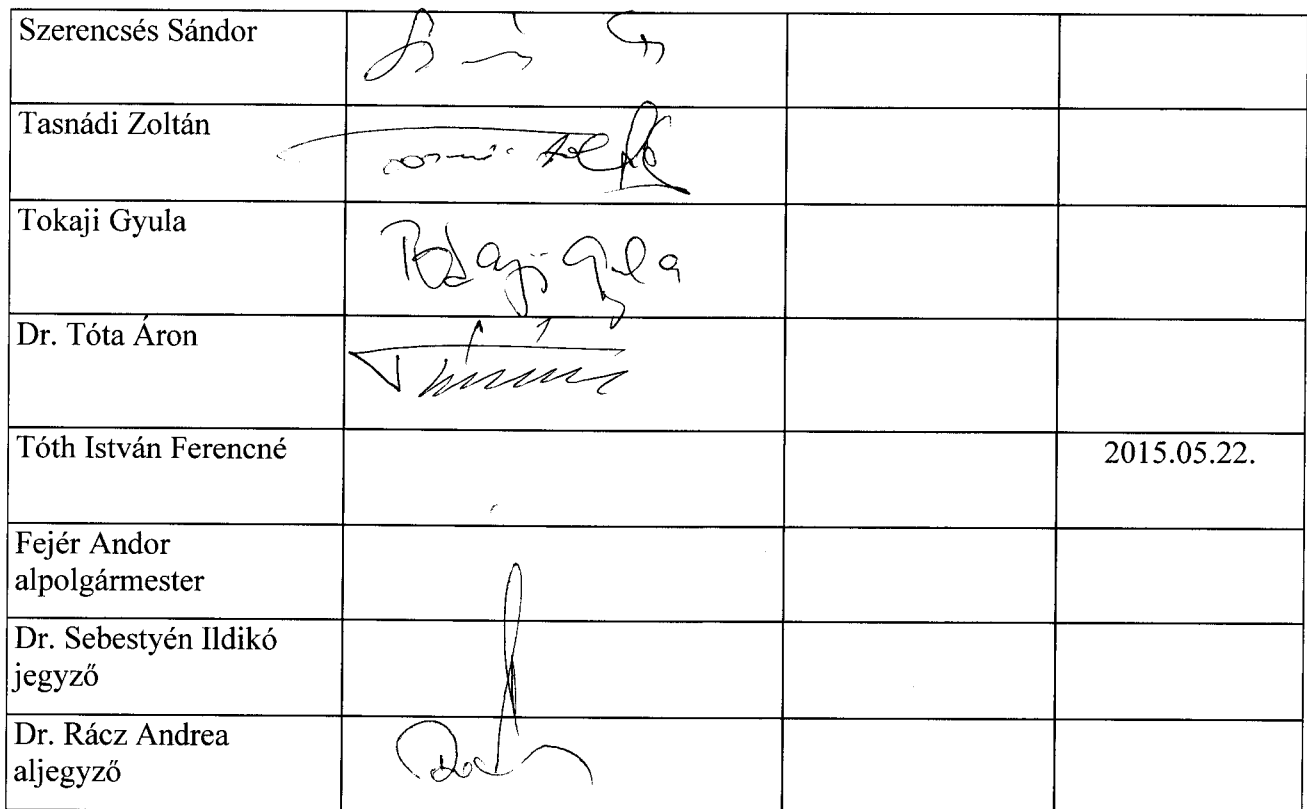 Szerencsés Sándor
Tasnádi Zoltán
Tokaji Gyula
Tokaji Gyula
Dr. Tóta Áron
Tóth István Ferencné 2015.05.22.
Fejér Andor
alpolgármester
Dr. Sebestyén Ildikó
jegyző
Dr. Rácz Andrea
aljegyző